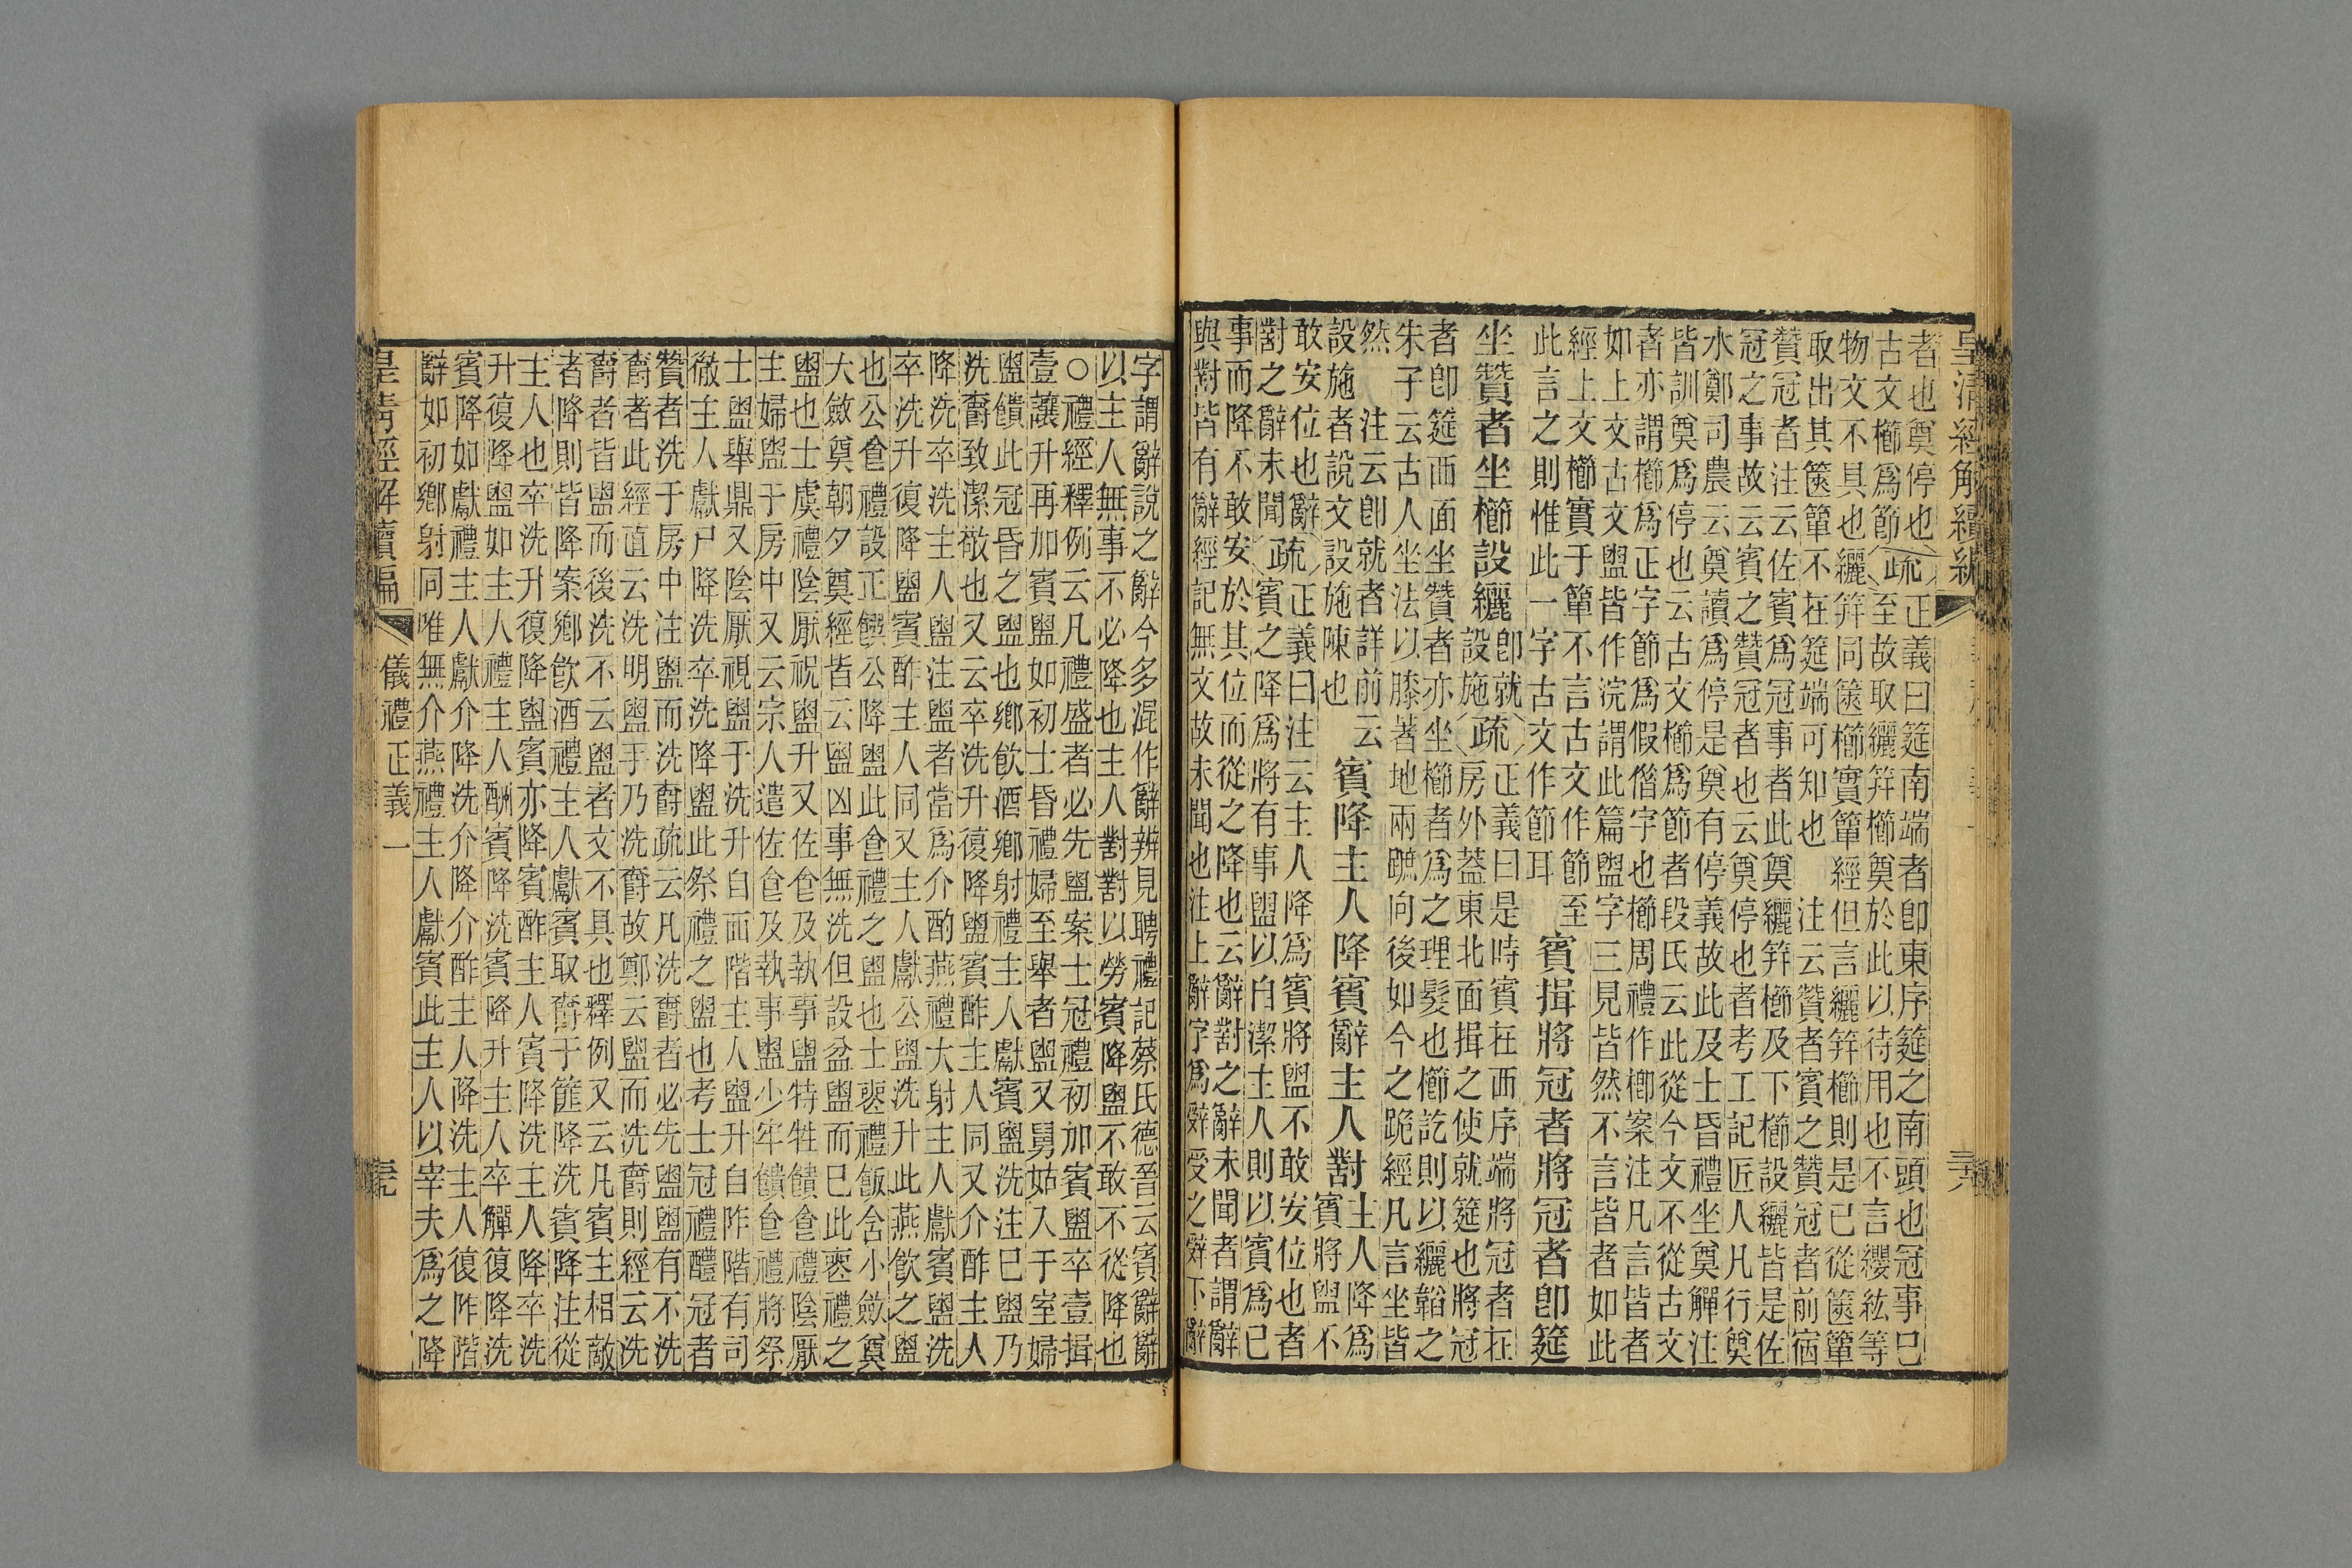 皇清經解續編
者也奠停也疏正義曰筵南端者卽東序筵之南頭也冠事已
古文櫛爲節至故取纚笄櫛奠於此以待用也不言纓紘等
物文不具也纚笄同篋櫛實簞經但言纚笄櫛則是已從篋簞
取出其篋簞不在筵端可知也 注云贊者賓之贊冠者前宿
贊冠者注云佐賓爲冠事者此奠纚笄櫛及下櫛設纚皆是佐
冠之事故云賓之贊冠者也云奠停也者考工記匠人凡行奠
水鄭司農云奠讀爲停是奠有停義故此及士昏禮坐奠觶注
皆訓奠爲停也云古文櫛爲節者段氏云此從今文不從古文
者亦謂櫛爲正字節爲假借字也櫛周禮作楖案注凡言皆者
如上文古文盥皆作浣謂此篇盥字三見皆然不言皆者如此
經上文櫛實于簞不言古文作節至
此言之則惟此一字古文作節耳
賓揖將冠者將冠者卽筵
坐贊者坐櫛設纚
卽就
設施
疏
正義曰是時賓在西序端將冠者在
房外蓋東北面揖之使就筵也將冠
者卽筵西面坐贊者亦坐櫛者爲之理髮也櫛訖則以纚韜之
朱子云古人坐法以膝著地兩蹠向後如今之跪經凡言坐皆
然 注云卽就者詳前云
設施者說文設施陳也
賓降主人降賓辭主人對
主人降爲
賓將盥不
敢安位也辭疏正義曰注云主人降爲賓將盥不敢安位也者
對之辭未聞賓之降爲將有事盥以自潔主人則以賓爲已
事而降不敢安於其位而從之降也云辭對之辭未聞者謂辭
與對皆有辭經記無文故未聞也注上辭字爲辤受之辤下辭
字謂辭說之辭今多混作辭辨見聘禮記蔡氏德晉云賓辭辭
以主人無事不必降也主人對對以勞賓降盥不敢不從降也
○禮經釋例云凡禮盛者必先盥案士冠禮初加賓盥卒壹揖
壹讓升再加賓盥如初士昏禮婦至舉者盥又舅姑入于室婦
盥饋此冠昏之盥也鄉飮酒鄉射禮主人獻賓盥洗注已盥乃
洗爵致潔敬也又云卒洗升復降盥賓酢主人同又介酢主人
降洗卒洗主人盥注盥者當爲介酌燕禮大射主人獻賓盥洗
卒洗升復降盥賓酢主人同又主人獻公盥洗升此燕飮之盥
也公食禮設正饌公降盥此食禮之盥也士喪禮飯含小斂奠
大斂奠朝夕奠經皆云盥凶事無洗但設盆盥而已此喪禮之
盥也士虞禮陰厭祝盥升又佐食及執事盥特牲饋食禮陰厭
主婦盥于房中又云宗人遣佐食及執事盥少牢饋食禮將祭
士盥舉鼎又陰厭視盥于洗升自西階主人盥升自阼階有司
徹主人獻尸降洗卒洗降盥此祭禮之盥也考士冠禮醴冠者
贊者洗于房中注盥而洗爵疏云凡洗爵者必先盥盥有不洗
爵者此經直云洗明盥手乃洗爵故鄭云盥而洗爵則經云洗
爵者皆盥而後洗不云盥者文不具也釋例又云凡賓主相敵
者降則皆降案鄉飮酒禮主人獻賓取爵于篚降洗賓降注從
主人也卒洗升復降盥賓亦降賓酢主人賓降洗主人降卒洗
升復降盥如主人禮主人酬賓降洗賓降升主人卒觶復降洗
賓降如獻禮主人獻介降洗介降介酢主人降洗主人復阼階
辭如初鄉射同唯無介燕禮主人獻賓此主人以宰夫爲之降
皇清經解續編
儀禮正義一